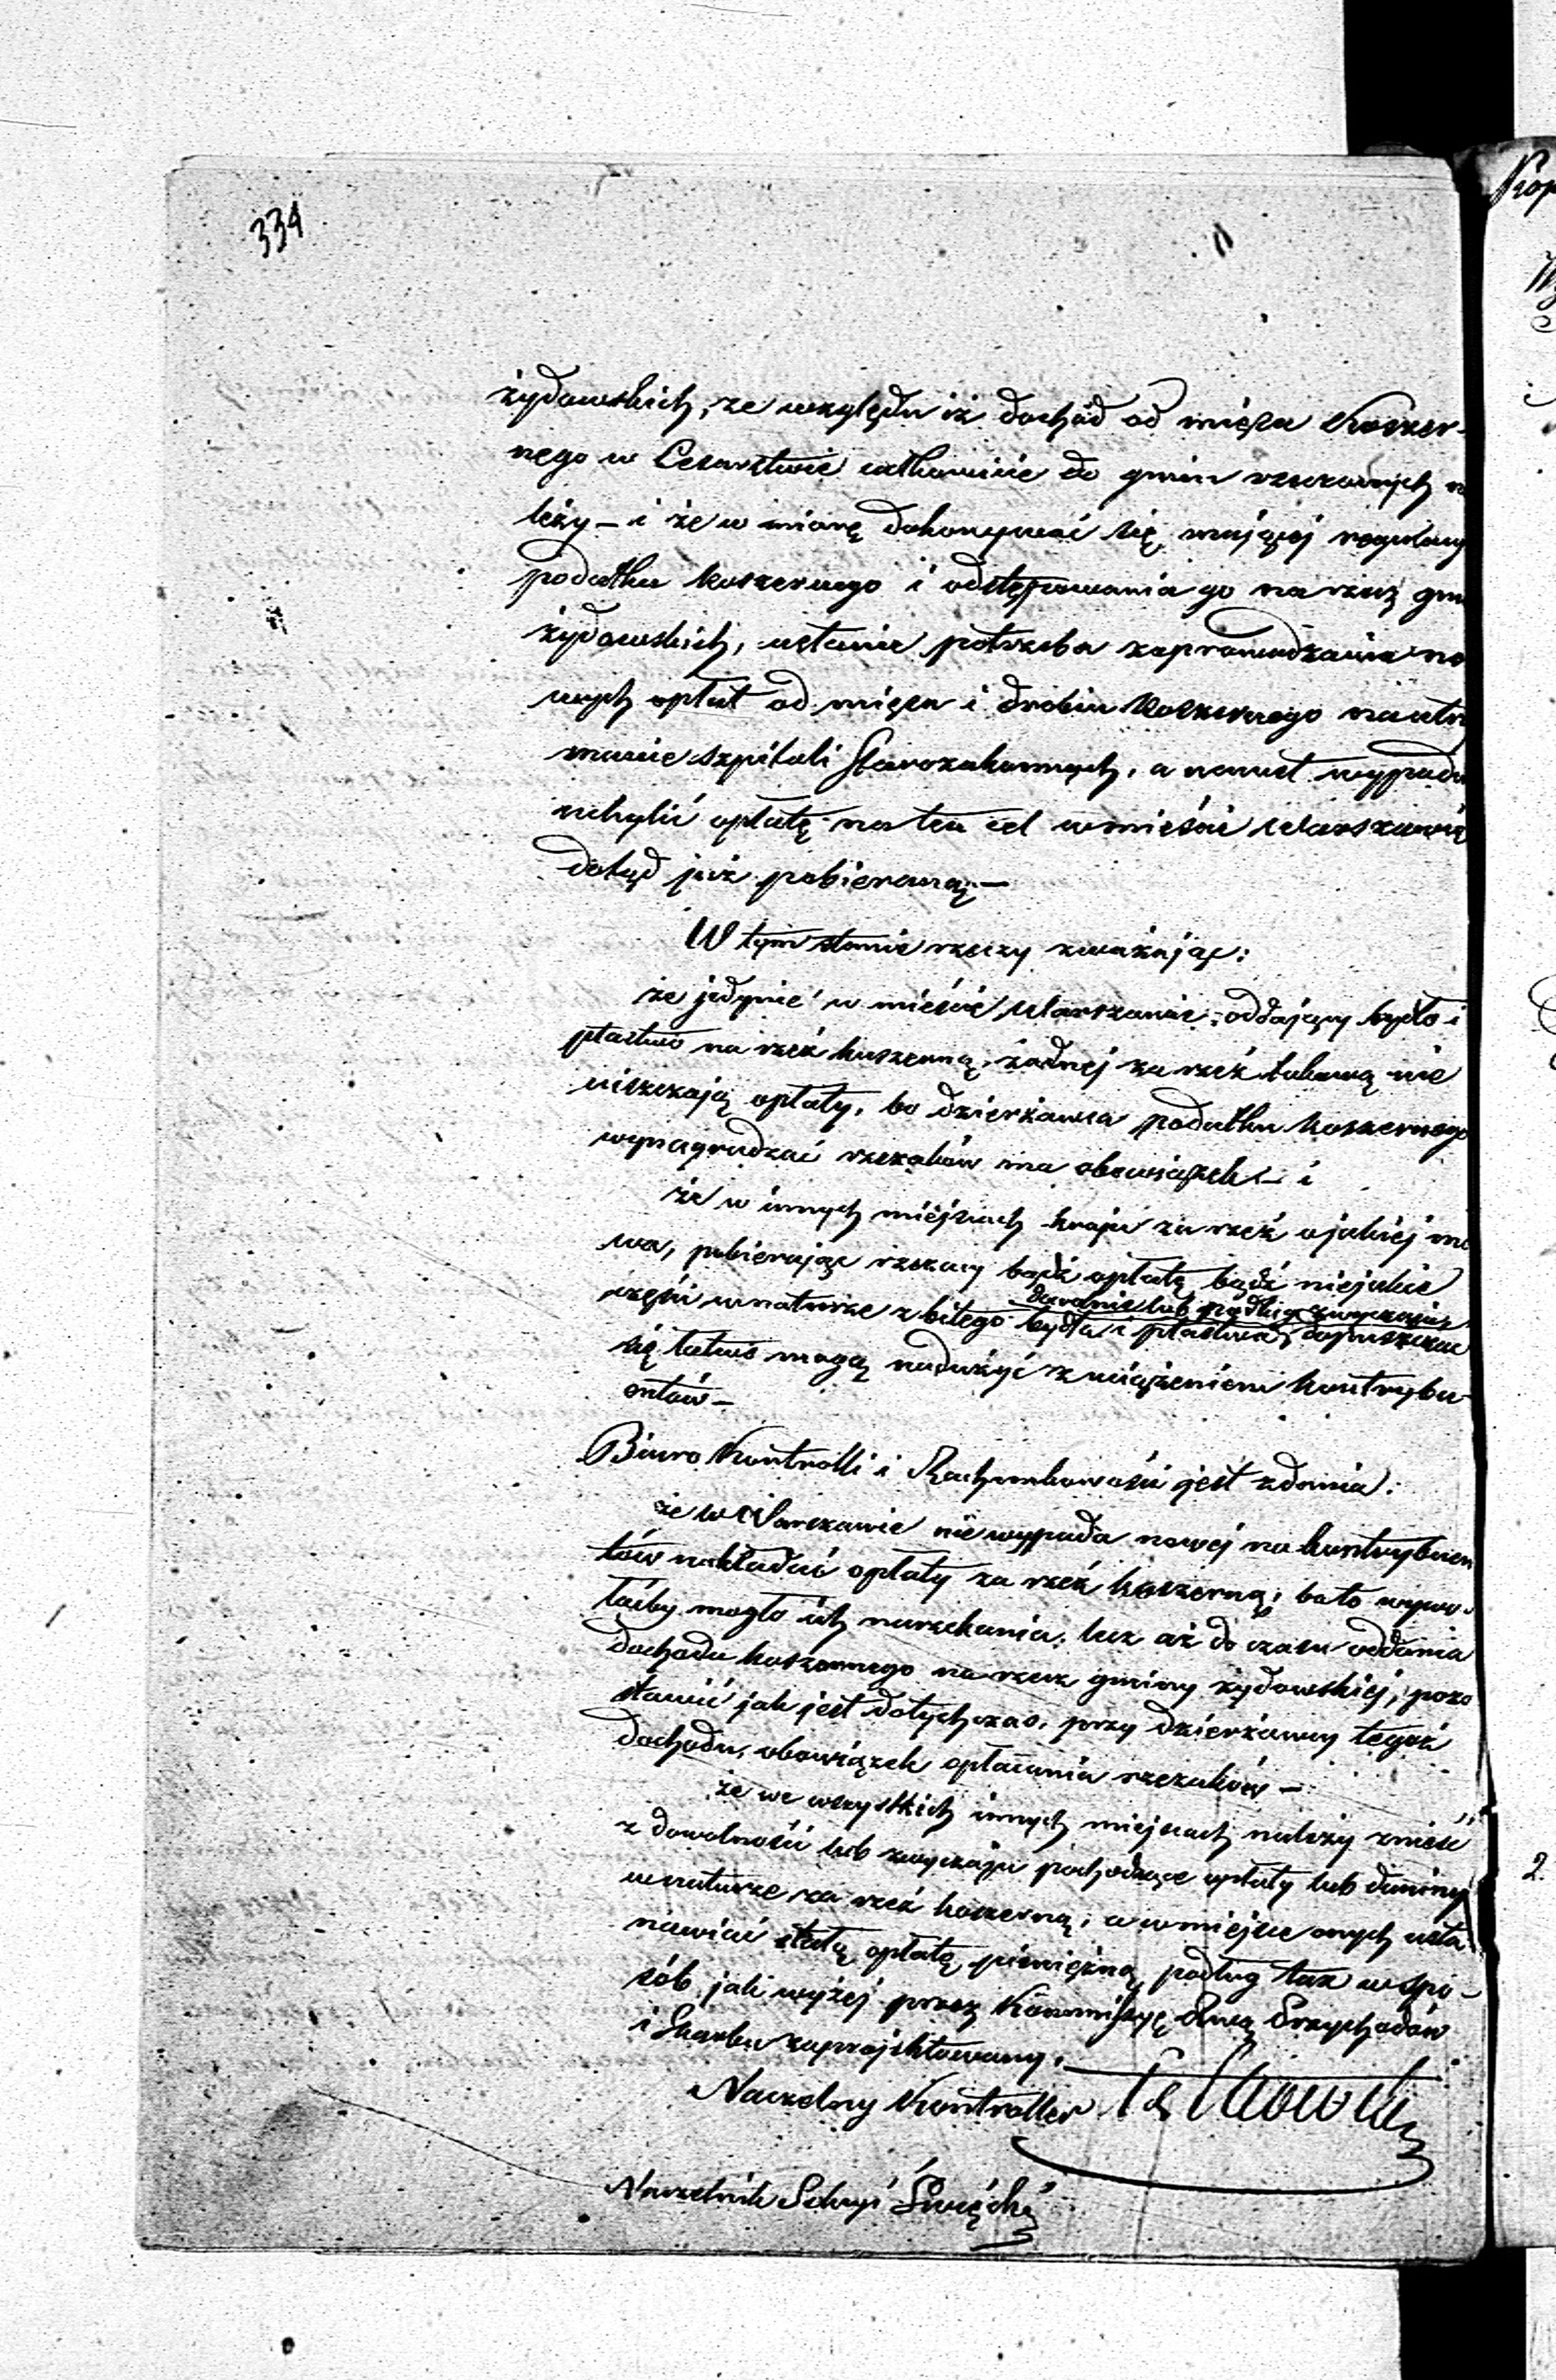 334
żydowskich, ze względu iż dochód od mięsa Koszer-
nego w Cesarstwie całkowicie do gmin rzeczonych n
leży – i że w miarę dokonywać się mającej regulacy
podatku koszernego i odstępowania go na rzecz gmi
żydowskich, ustanie potrzeba zaprowadzania no
wych opłat od mięsa i drobiu koszernego na utrzy
manie szpitali Starozakonnych, a nawet wypadn
uchylić opłatę na ten cel w mieście Warszawie
dotąd już pobieraną. –
W tym stanie rzeczy zważając:
że jedynie w mieście Warszawie, oddający bydło i
ptastwo na rzeź koszerną, żadnej za rzeź takową nie
uiszczają opłaty, bo dzierżawca podatku koszernego
wynagradzać rzezaków ma obowiązek – i
że w innych miejscach kraju za rzeź o jakiej mo
wa, pobierając rzezacy bądź opłatę bądź niejakie
dowolnie lub podług zwyczaju
części w naturze z bitego bydła i ptastwa, dopuszczać
się łatwo mogą nadużyć z uciążeniem kontrybu-
entów –
Biuro Kontrolli i Rachunkowości jest zdania:
że w Warszawie nie wypada nowej na kontrybuen
tów nakładać opłaty za rzeź koszerną, bo to wywo-
łaćby mogło ich narzekania, lecz aż do czasu oddania
dochodu koszernego na rzecz gminy żydowskiej, pozo
stawić jak jest dotychczas, przy dzierżawcy tegoż
dochodu, obowiązek opłacania rzezaków –
że we wszystkich innych miejscach należy znieść
z dowolności lub zwyczaju pochodzące opłaty lub daniny
w naturze za rzeź koszerną, a w miejsce onych usta
nowić stałą opłatę pieniężną podług tax w spo-
sób jak wyżej przez Kommissyę Rząd. Przychodów
i Skarbu zaprojektowany. –
Naczelny Kontroller
Naczelnik Sekcyi Święcki
2.